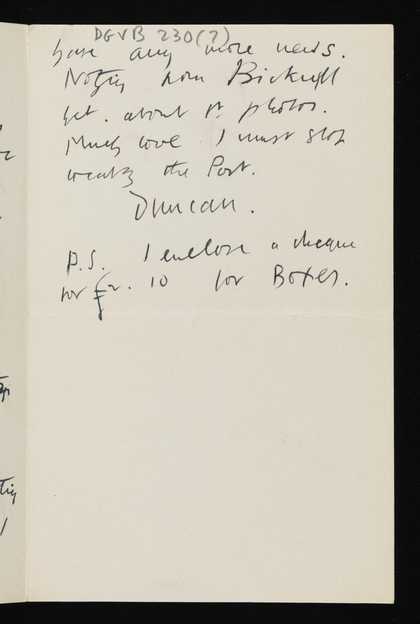 DGVB 230(7)
have any more news.
Nothing from Bicknell
yet. about the photos.
Much love I must stop
the Post.
Duncan.
P.S. I enclose a cheque
for £2. 10 for Boxes.